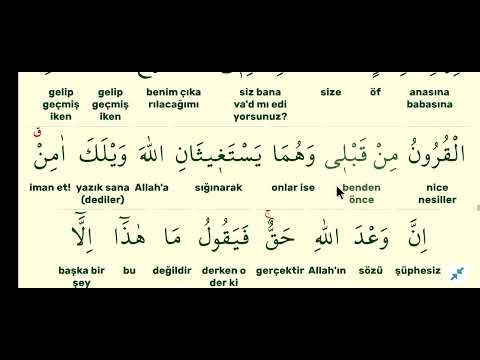 anasına babasına öf size siz bana va'd mı edi yorsunuz? benim çıka rılacağımı gelip geçmiş iken gelip geçmiş iken
الْقُرُونُ مِنْ قَبْلٖى وَهُمَا يَسْتَغٖيثَانِ اللهَ وَيْلَكَ اٰمِنْۗ
nice nesiller benden önce onlar ise sığınarak Allah'a yazık sana (dediler) iman et!
اِنَّ وَعْدَ اللهِ حَقٌّۚ فَيَقُولُ مَا هٰذَٓا اِلَّٓا
şüphesiz sözü Allah'ın gerçektir derken o der ki değildir bu başka bir şey